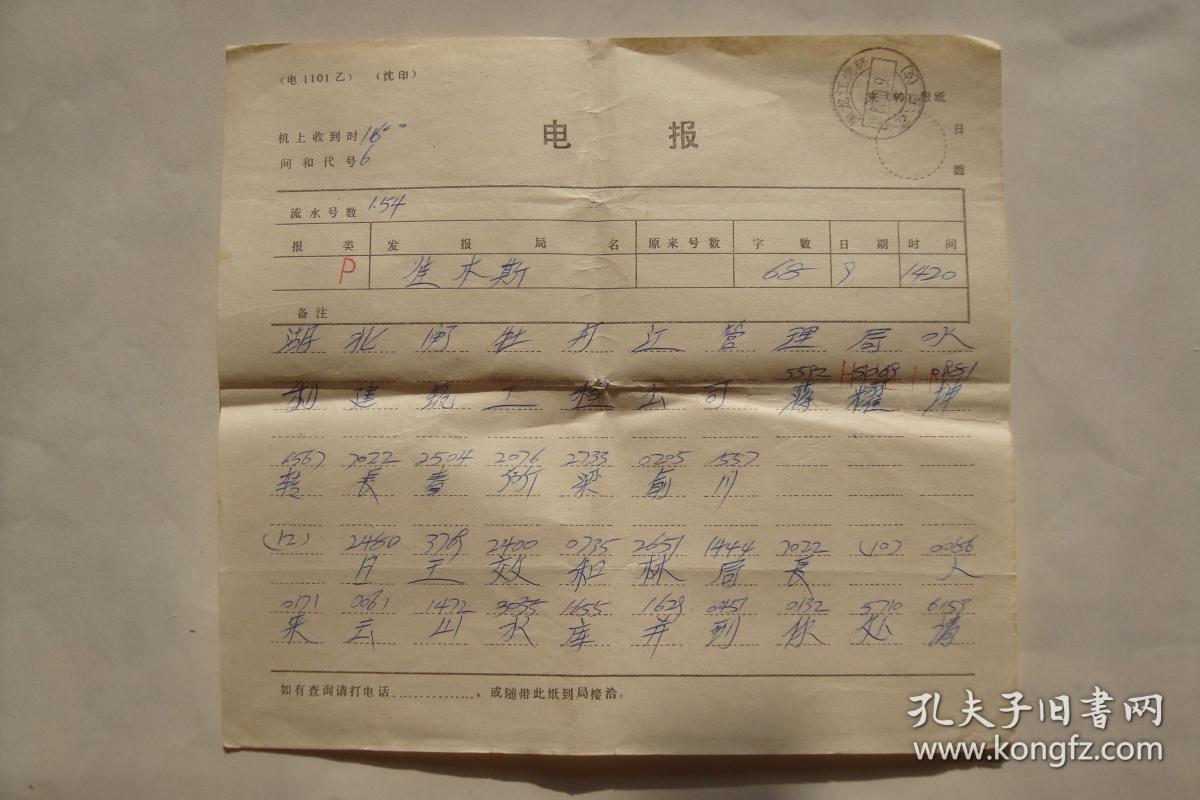 (电1101乙) (沈印)
来(转)报纸
机上收到时 16⁰⁰
间和代号 6
电 报
日
戳
流水号数 154
报类 发报局名 原来号数 字数 日期 时间
P 佳木斯 68 9 1420
备注
湖北 牡丹江管理局水
5592 5069 0951
利建筑工程公司 蒋耀坤
6567 7022 2504 2076 2733 0205 1557
转长春 梁俞川
(12) 2480 3769 2400 0735 2651 1444 7022 (10) 0086
日王效和林局长 人
0171 0061 1472 3055 1655 1629 0451 0132 5710 6153
来云山水库并到你处请
如有查询请打电话..............,或随带此纸到局接洽。
孔夫子旧书网
www.kongfz.com